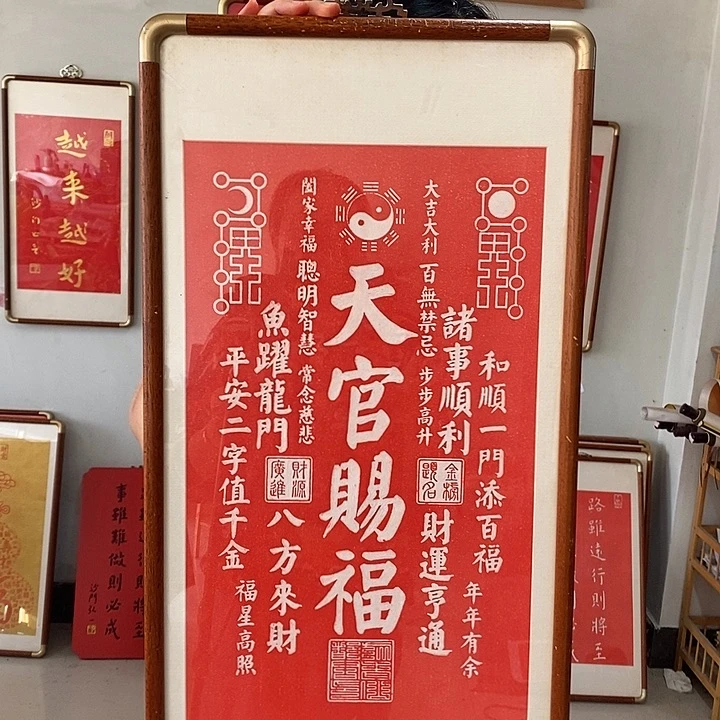 天官賜福
大吉大利 百無禁忌 步步高升
諸事順利
金榜題名
財運亨通
和順一門添百福
年年有余
闔家幸福 聰明智慧 常念慈悲
魚躍龍門
財源廣進
八方來財
平安二字值千金
福星高照
越来越好
事雖難做則必成
路雖遠行則將至